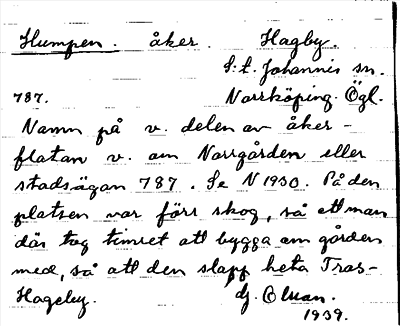 Humpen. åker. Hagby.
S:t. Johannis sn.
787. Norrköping. Ögl.
Namn på v. delen av åker-
flatan v. om Norrgården eller
stadsägan 787. Se N 1930. På den
platsen var förr skog, så ett man
där tog timret att bygga om gården
med, så att den slapp heta Tras-
Hageby. Olsson.
1939.